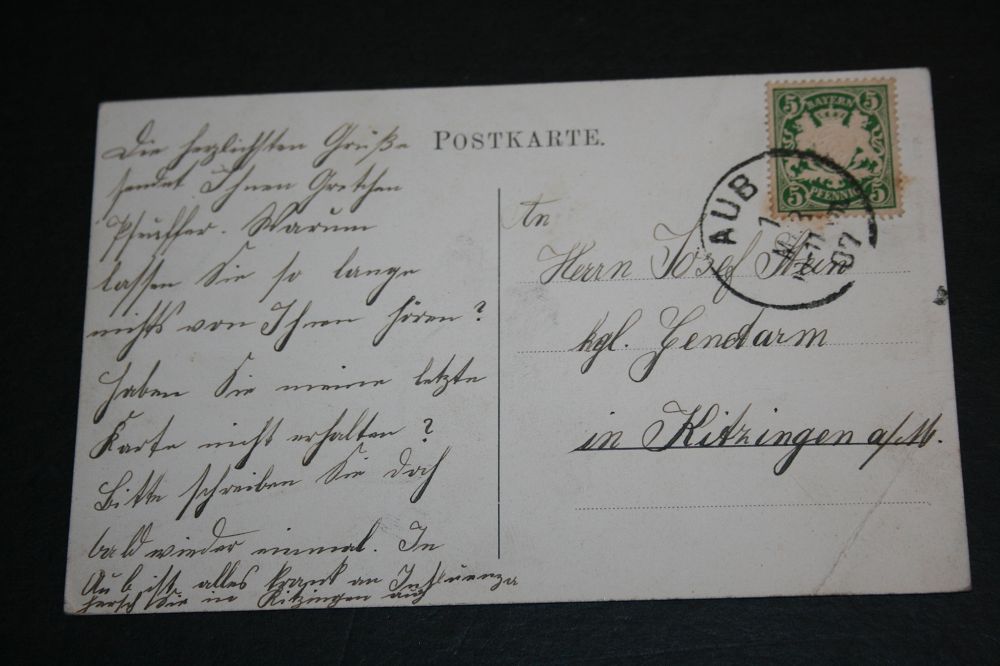 POSTKARTE.
5 BAYERN 5
5 PFENNIG 5
AUB
07
Die herzlichsten Grüße
sendet Ihnen Gretchen
Pfeuffer. Warum
lassen Sie so lange
nichts von Ihnen hören?
Haben Sie meine letzte
Karte nicht erhalten?
Bitte schreiben Sie doch
bald wieder einmal. In
Aub ist alles krank an Influenza
herscht die in Kitzingen auch
An
Herrn Josef
kgl. Gendarm
in Kitzingen a/M.